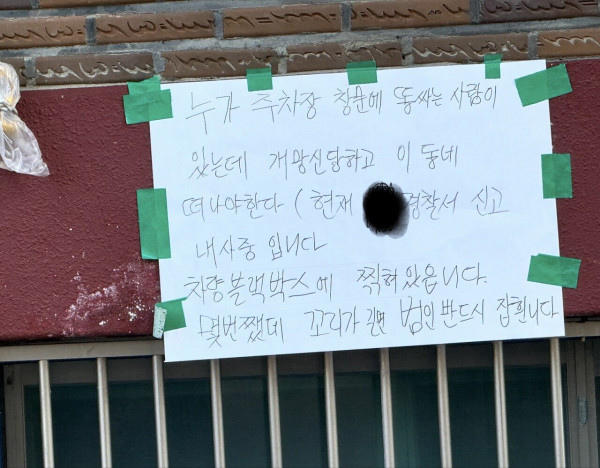 누가 주차장 창문에 똥싸는 사람이
있는데 개망신당하고 이 동네
떠나야한다 ( 현재 경찰서 신고
내사중 입니다
차량블랙박스에 찍혀있읍니다.
몇번쨌데 꼬리가 길면 범인반드시 잡힙니다